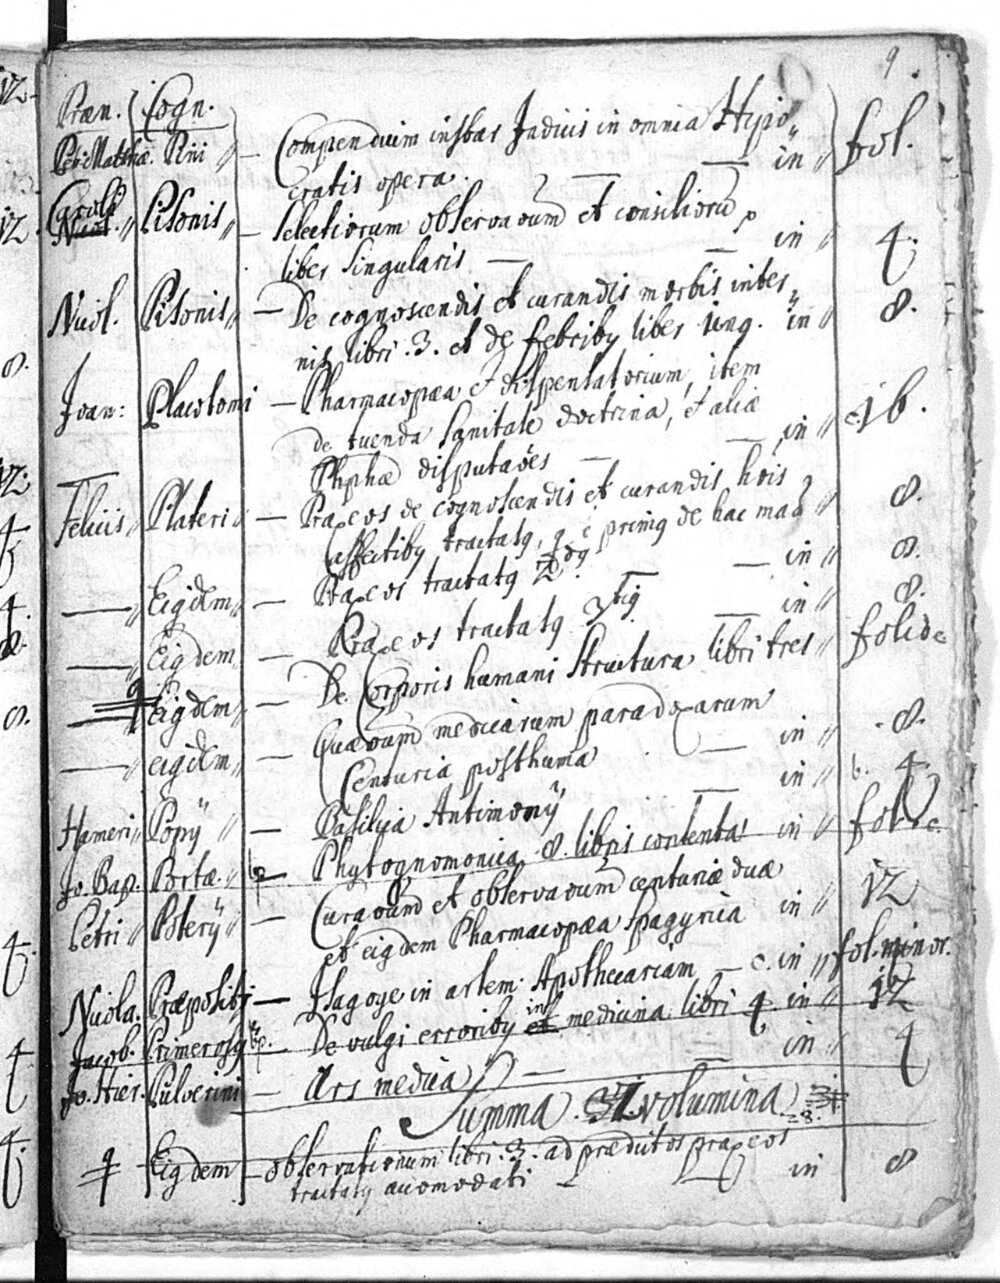 9.
Præn. Cogn.
Petr. Matthæ. Pini — Compendium instar Indicis in omnia Hypo„
cratis opera. — in fol.
Caroli
Nicol. Pisonis — Selectiorum observaōum et consiliorū
liber singularis — in 4.
Nicol. Pisonis — De cognoscendis et curandis morbis inter„
nis libri .3. et de febribꝰ liber sing. in 8.
Joan: Placotomi — Pharmacopæa et dispensatorium, item
de tuenda sanitate doctrina, et aliæ
Phphæ disputaōes — in 16.
Felicis Plateri — Praxeos de cognoscendis et curandis hois
affectibꝰ tractatꝰ, primꝰ de hac in 8.
— Eiꝰdem — Praxeos tractatꝰ 2dꝰ. — in 8.
— Eiꝰdem — Praxeos tractatꝰ 3tiꝰ — in 8.
— Eiꝰdem — De Corporis humani structura libri tres folio
— eiꝰdem — Quæōum medicarum paradoxarum
Centuria posthuma — in 8.
Hameri Popÿ — Basilica Antimonÿ — in 4
Jo. Bap. Portæ — Phytognomonica 8. libris contenta in fol.
Petri Poterÿ — Curaōum et observaōum centuriæ duæ
et eiꝰdem Pharmacopæa spagyrica in 12
Nicola. Præpositi — Isagoge in artem Apothecariam — in fol. minor.
Jacob. Primerosÿ — De vulgi erroribꝰ in medicina libri 4 in 12
Jo. Hier. Pulverini — Ars medica — in 4
Summa volumina
28.
Eiꝰdem — observationum libri .3. ad prædictos praxeos
tractatꝰ accomodati — in 8